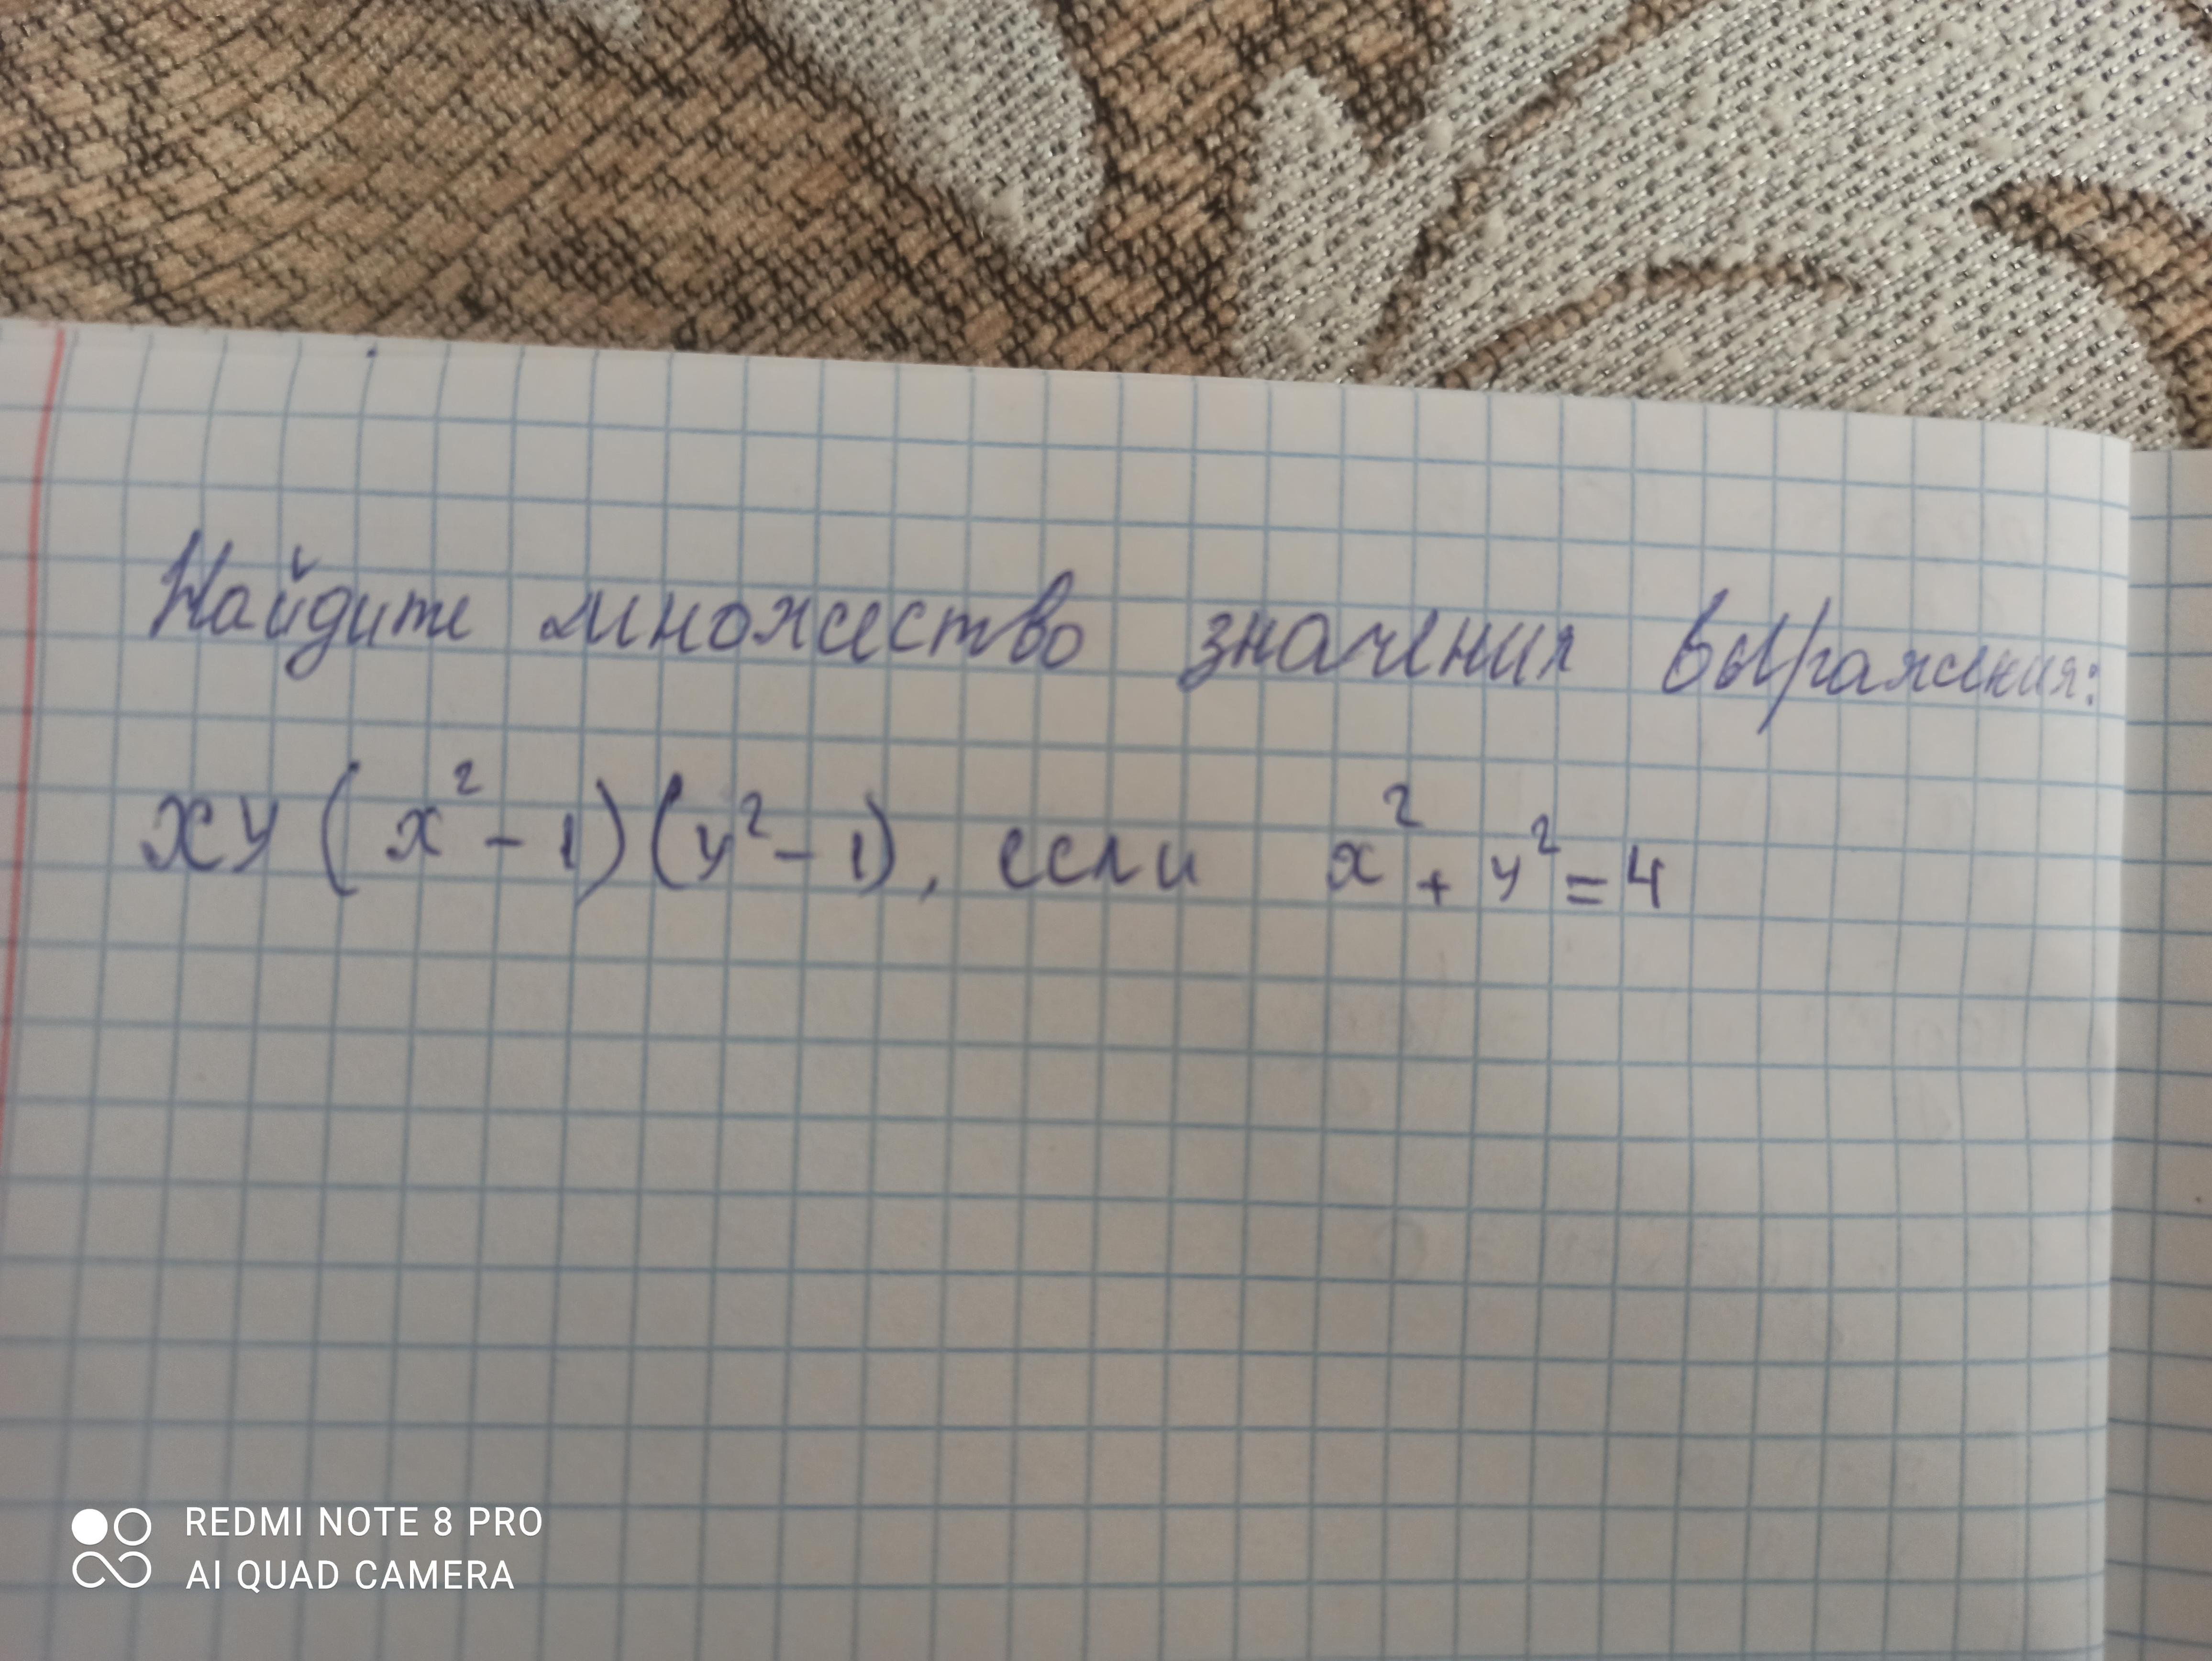 Найдите множество значения выражения:
xy (x² - 1)(y² - 1), если x² + y² = 4
REDMI NOTE 8 PRO
AI QUAD CAMERA